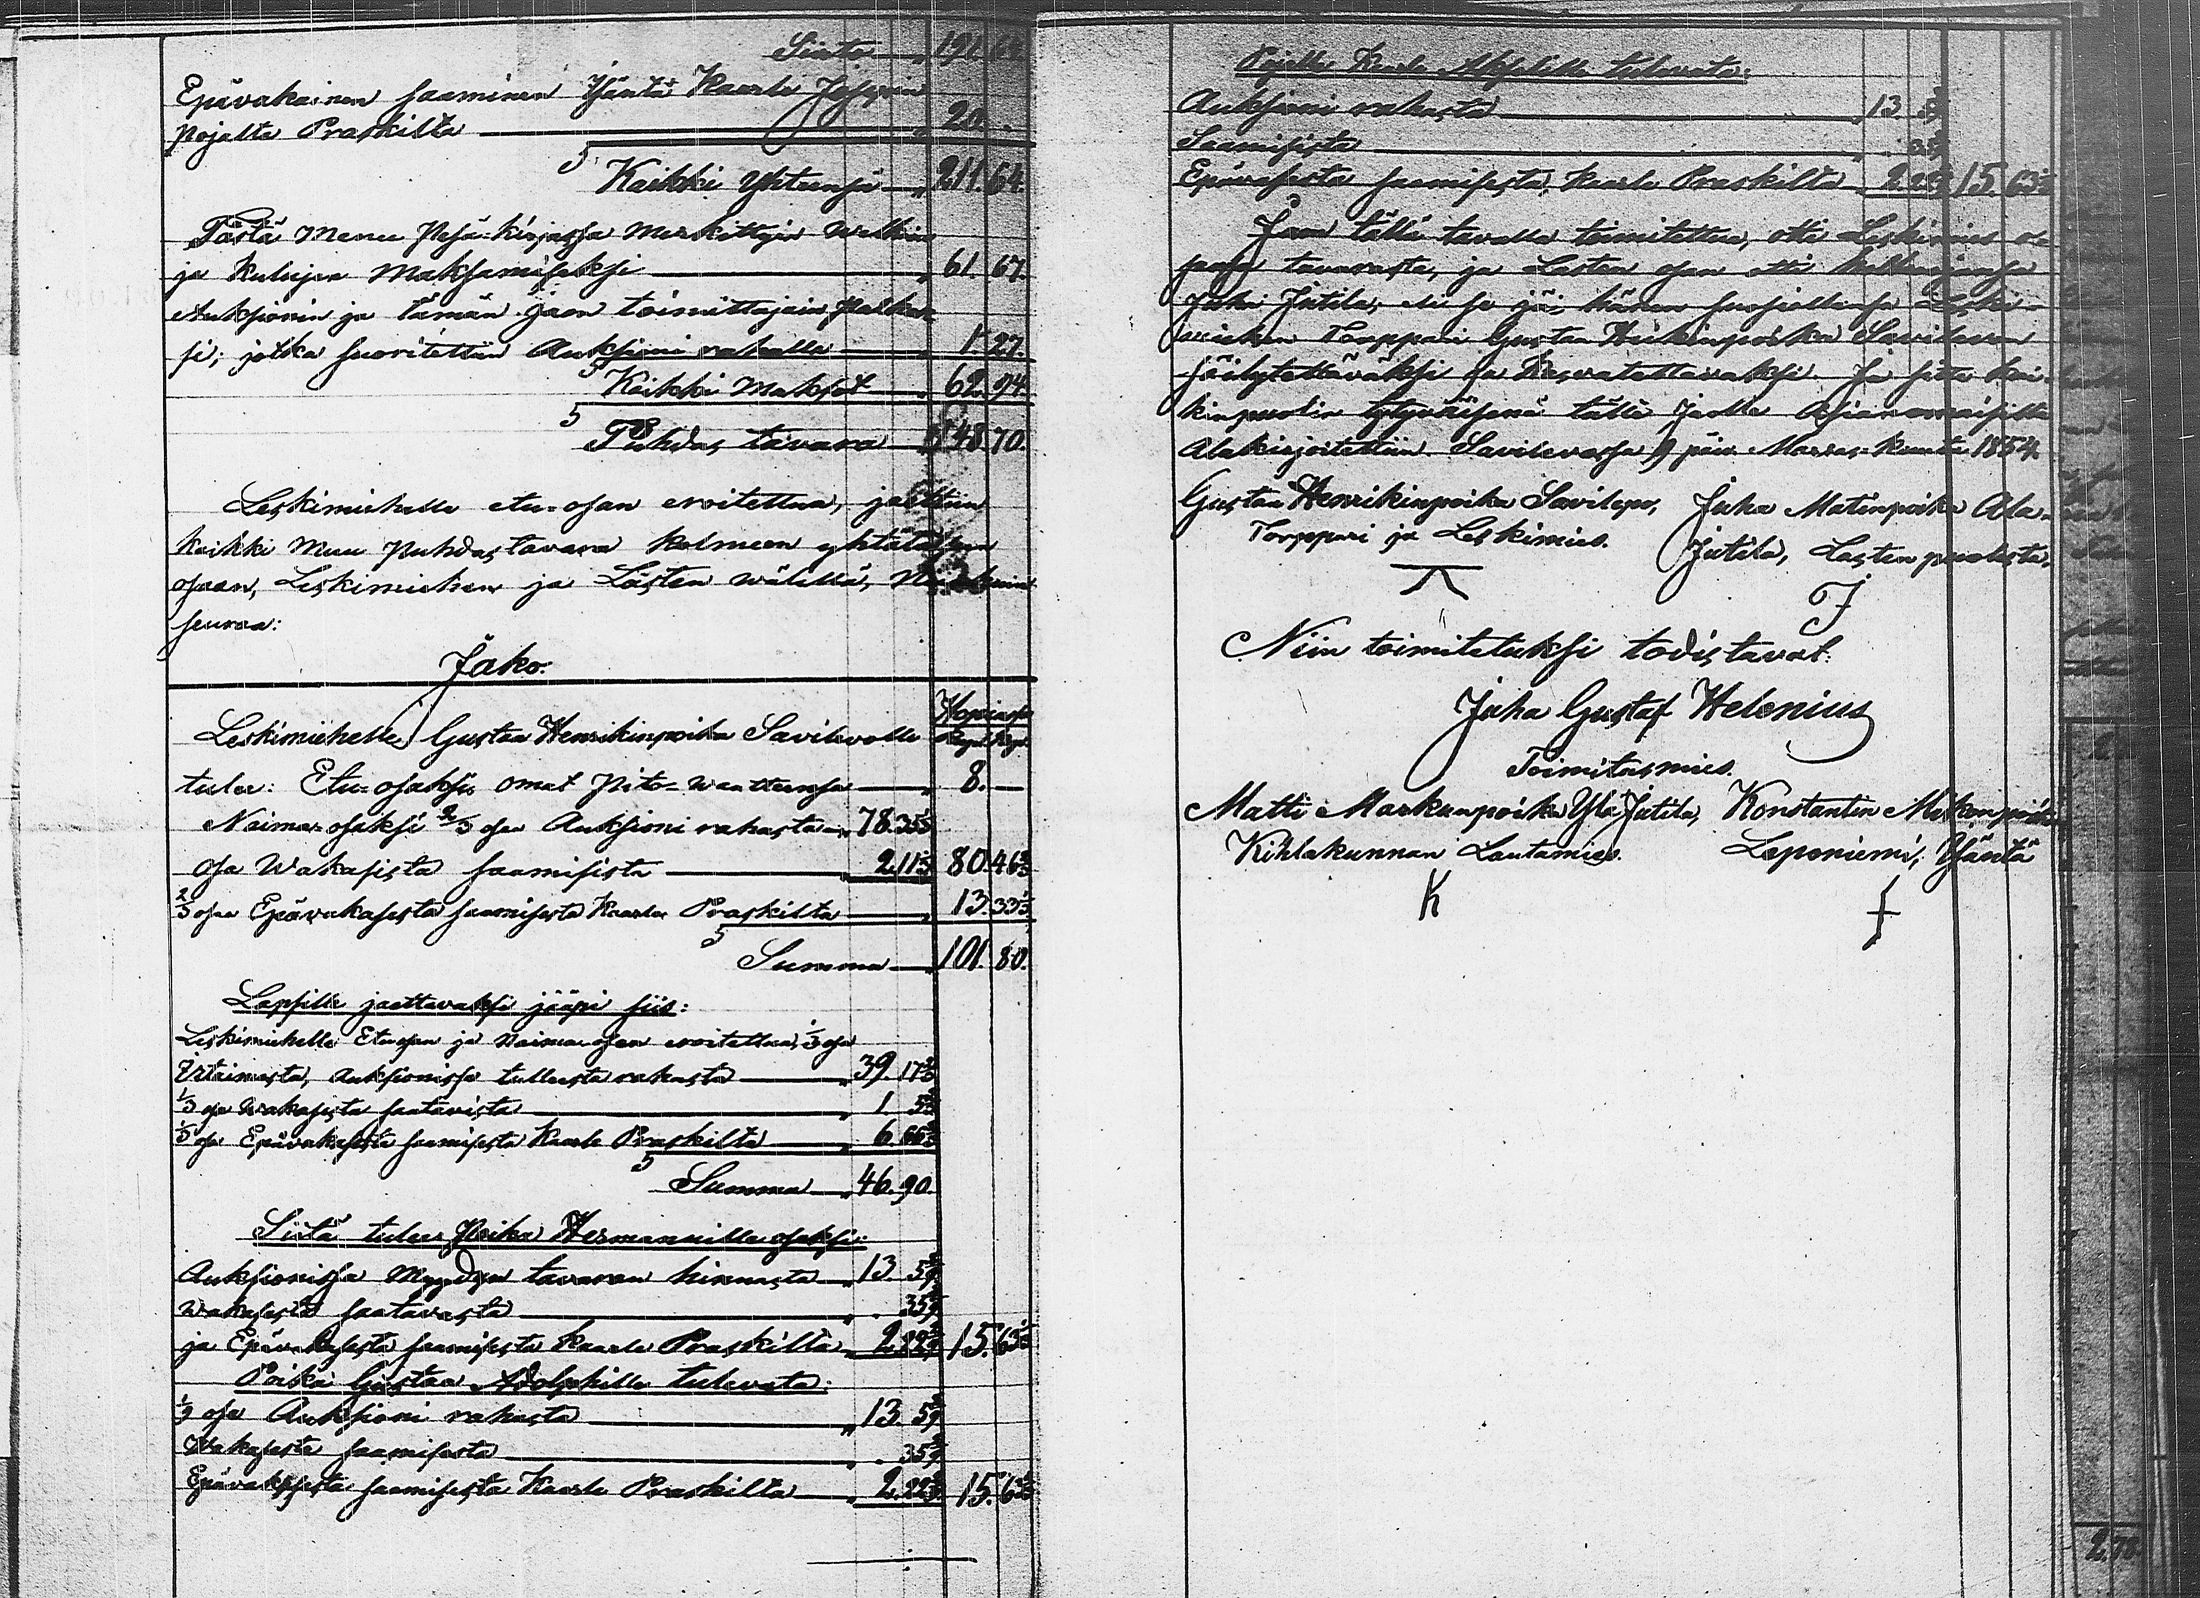 Siirto 191. 64.
Epävakainen saaminen Isäntä Kaarle Josepin
pojalta Praskilta 20. -
Kaikki Yhteensä 211. 64.
Tästä menee Pesä-kirjassa merkittyin welkain
ja kulujen maksamiseksi 61. 67.
Auksionin ja tämän jaon toimittajain palkak-
si; jotka suoritettiin Auksioni rahalla 1. 27.
Kaikki maksot 62. 94.
Puhdas tavara 148. 70.
Leskimiehelle etu-osan eroitettua, jaettiin
kaikki muu puhdas tavara kolmeen yhtäläiseen
osaan, Leskimiehen ja Lasten wälillä, niinkuin
seuraa:
Jako.
Hopiassa
Leskimiehelle Gustaa Henrikinpoika Savilevolle Rupl. Kop.
tulee: Etu-osaksi omat pito-waatteensa 8. —
Naima-osaksi 2/3 osa Auksioni rahasta 78. 35 1/3
osa Wakasista saamisista 2. 11 1/3 80. 46 2/3
2/3 osa Epävakasesta saamisesta Kaarle Praskilta 13. 33 1/3
Summa 101. 80.
Lapsille jaettavaksi jääpi siis:
Leskimiehelle Etuosan ja Naima-osan eroitettua, 1/3 osa
Irtaimesta, auksionissa tulleesta rahasta 39. 17 2/3
1/3 osa Wakasista saatavista 1. 5 2/3
1/3 osa Epävakasesta saamisesta Kaarle Praskilta 6. 66 2/3
Summa 46. 90.
Siitä tulee Poika Hermannille osaksi:
Auksionissa Myydyn tavaran hinnasta 13. 5 8/9
Wakasesta saatavasta 35 2/9
ja Epävakasesta saamisesta Kaarle Praskilta 2. 22 2/9 15. 63 1/3
Poika Gustaa Adolphille tulevata:
1/3 osa Auksioni rahasta 13. 5 8/9
Wakasesta saamisesta 35 2/9
Epävakasesta saamisesta Kaarle Praskilta 2. 22 2/9 15. 63 1/3
Pojalle Kaarle Akselille tulevata:
Auksioni rahasta 13
Saamisista
Epävasesta saamisesta Kaarle Praskilta 2. 22 2/9 15. 63 1/3
Jaon tällä tavalla toimitettua, otti Leskimies o-
sansa tavarasta, ja Lasten osan otti
Juha Jutila, eli se jäi hänen suosiollensa Leski-
miehen Torppari Gustaa Heikinpoika Savilevon
säilytettäväksi ja Kasvatettavaksi. Ja sitte kai-
kinpuolin tytyväisenä tälle Jaolle Asianomaisilta
Alakirjoitettiin Savilevossa 9 päiv. Marras-Kuuta 1854.
Gustaa Henrikinpoika Savilepo, Juha Matinpoika Ala-
Torppari ja Leskimies. Jutila, Lasten puolesta,
J
Niin toimitetuksi todistavat:
Juha Gustaf Helenius
Toimitusmies.
Matti Markunpoika Ylä Jutila, Konstantin Mikonpoika
Kihlakunnan Lautamies. Leponiemi, Isäntä
K